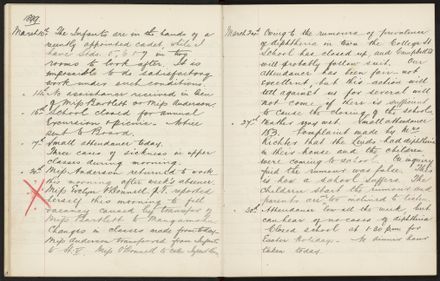 1899
March 10th The Infants are in the hands of a
recently appointed cadet, while I
have Stds 5, 6 & 7 in two
rooms to look after. It is
impossible to do satisfactory
work under such conditions.
14th No assistance received in lieu
of Miss Bartlett or Miss Anderson.
16th School closed for annual
Excursion picnic. Notice
sent to Board.
17th Small attendance today.
Three cases of sickness in upper
classes during morning.
Miss Anderson returned to work
this morning after week's absence.
Miss Evelyn O'Donnell P.T. reported
herself this morning to fill
vacancy caused by transfer of
Miss Bartlett to Mangamahu
Changes in classes made from today.
Miss Anderson transferred from Infants
to Miss O'Donnell to take Infants
March 24th Owing to the rumours of prevalence
of diphtheria in town the Collegiate
School has closed up, and Campbell St
will probably follow suit. Our
attendance has been fair, not
excellent, but this action will
tell against us for several will
not come if there is sufficient
to cause the closing of the schools
27th Weather good and small attendance
N.B. Complaint made by Mrs
Richter that the lads had diphtheria
in their house and the children
were coming to school. On inquiry
find the rumour was false. This
is how a school suffers. The
children start the rumours and
parents are too inclined to listen.
30th Attendance low all the week but
can hear of no cases of diphtheria
Closed school at 1.30 pm for
Easter Holidays. No dinner hour
taken today.